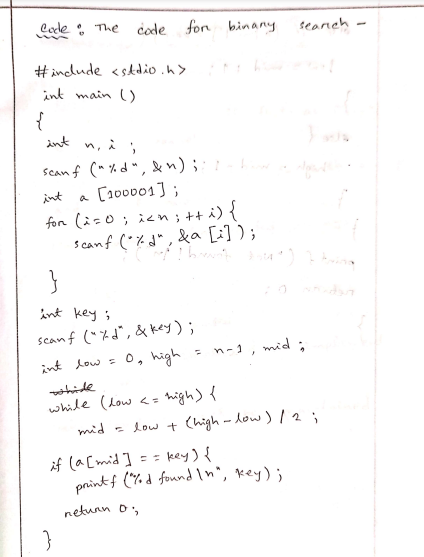 Code : The code for binary search -
#include <stdio.h>
int main ()
{
int n, i ;
scanf ("%d", &n) ;
int a [100001] ;
for (i=0 ; i<n ; ++i) {
scanf ("%d", &a [i] ) ;
}
int key ;
scanf ("%d", &key) ;
int low = 0, high = n-1, mid ;
while
while (low <= high) {
mid = low + (high - low) / 2 ;
if (a[mid] == key) {
printf ("%d found \n", key) ;
return 0 ;
}